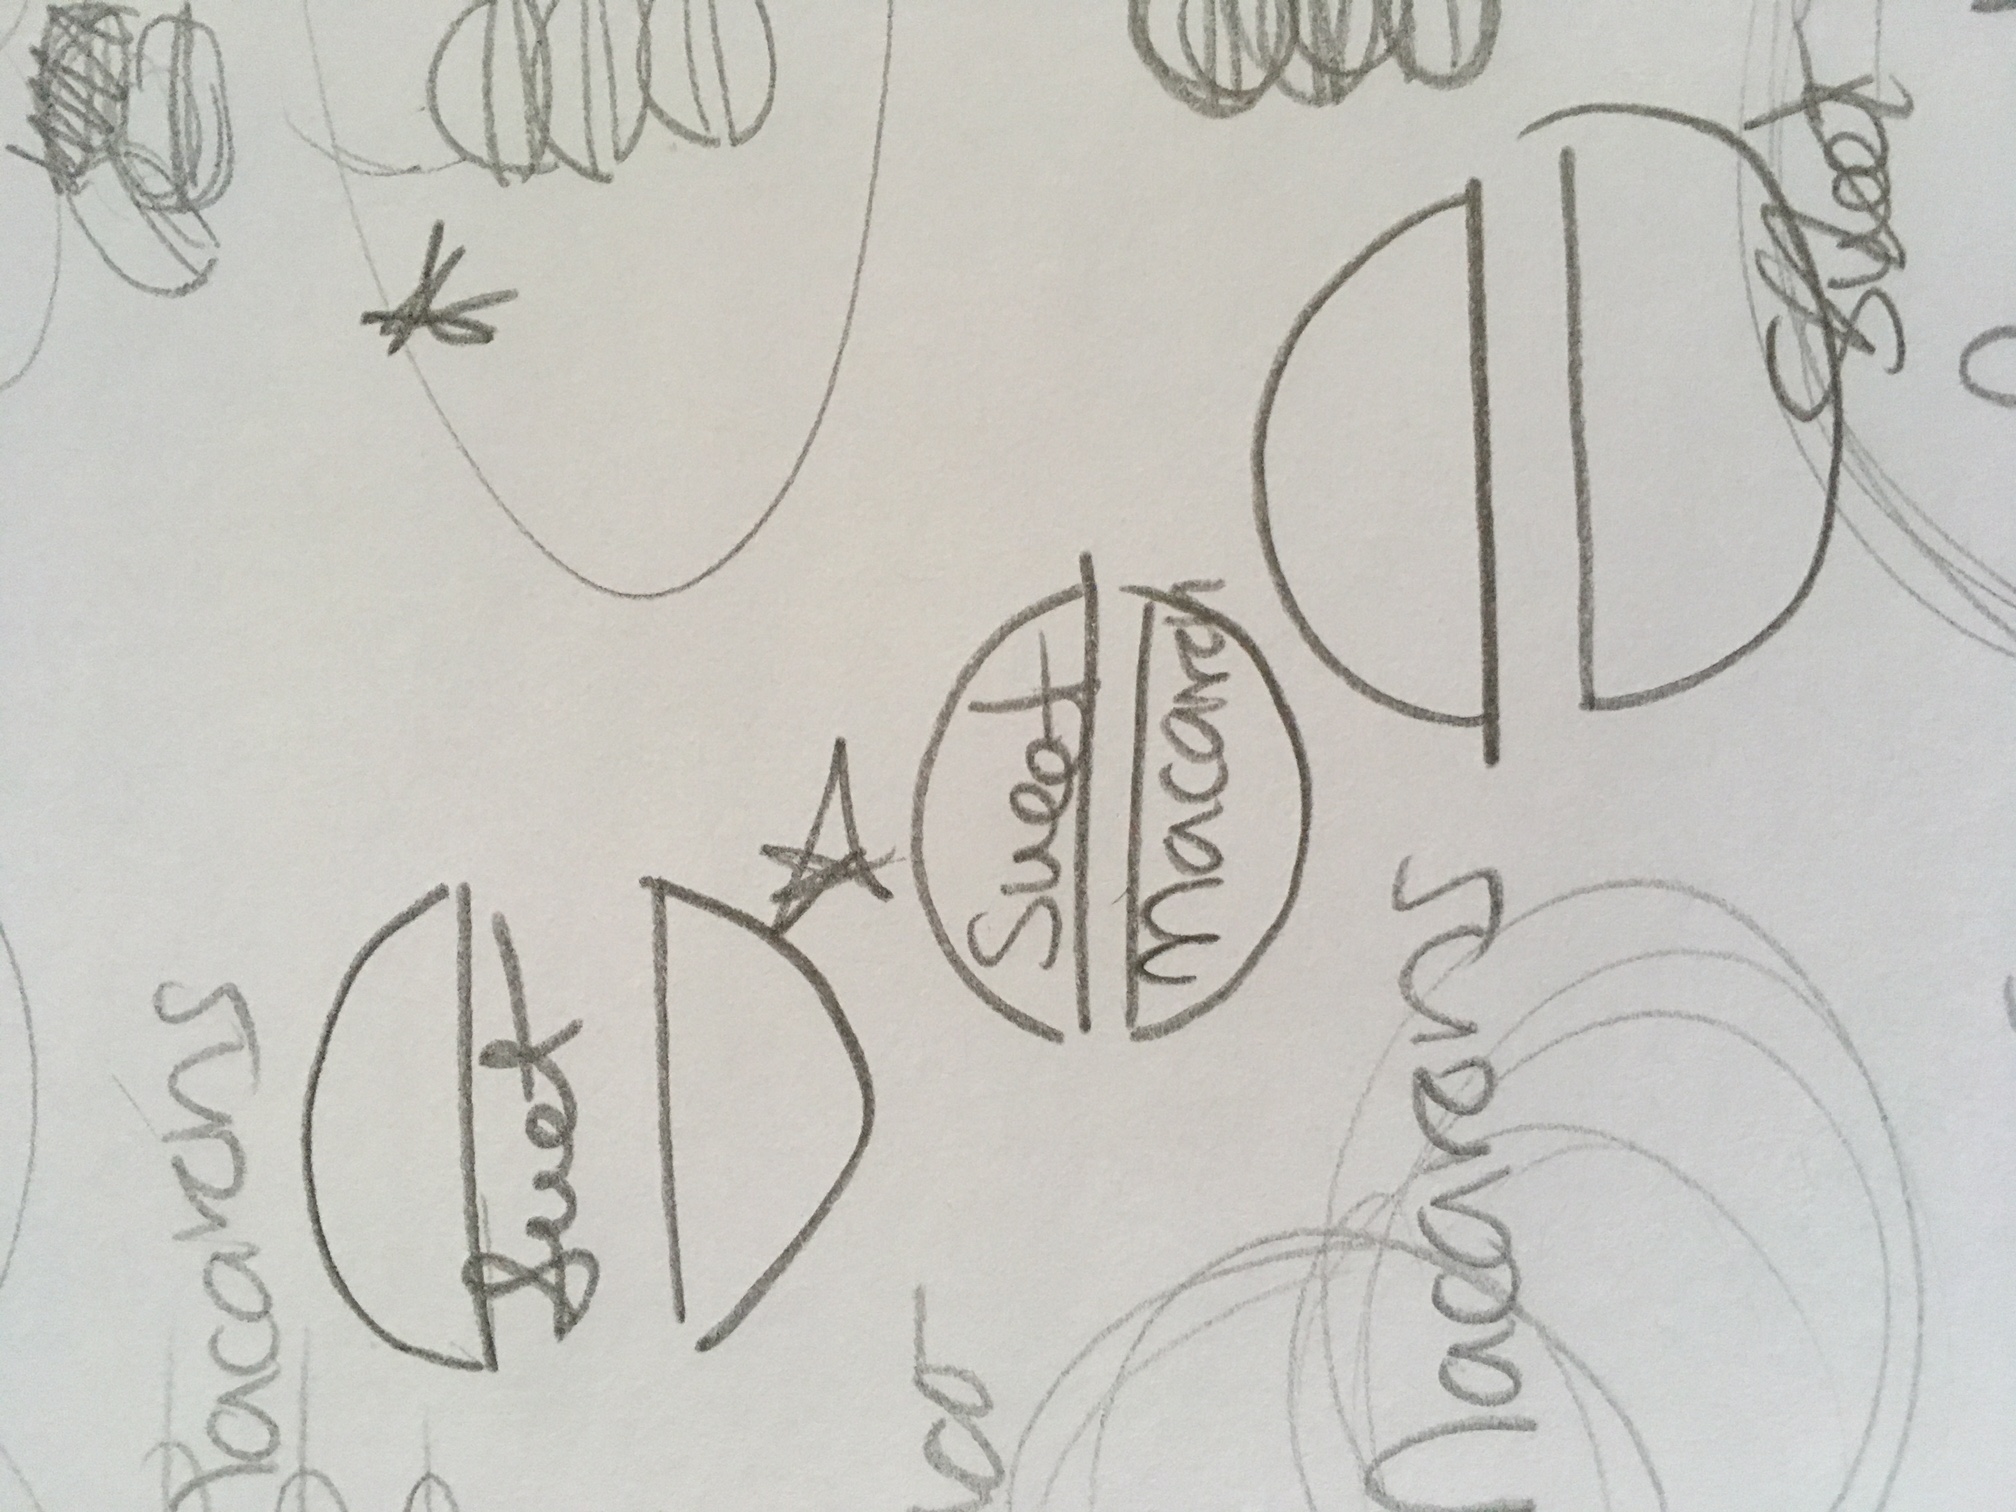 Macarons
Suet
aco
Sweet
Macaron
Macarons
Sweet